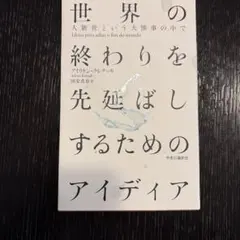 世界の
人新世という大惨事の中で
Ideias para adiar o fim do mundo
終わりを
アイウトン・クレナッキ
Ailton Krenak
国安真奈 訳
先延ばし
するための
中央公論新社
アイディア